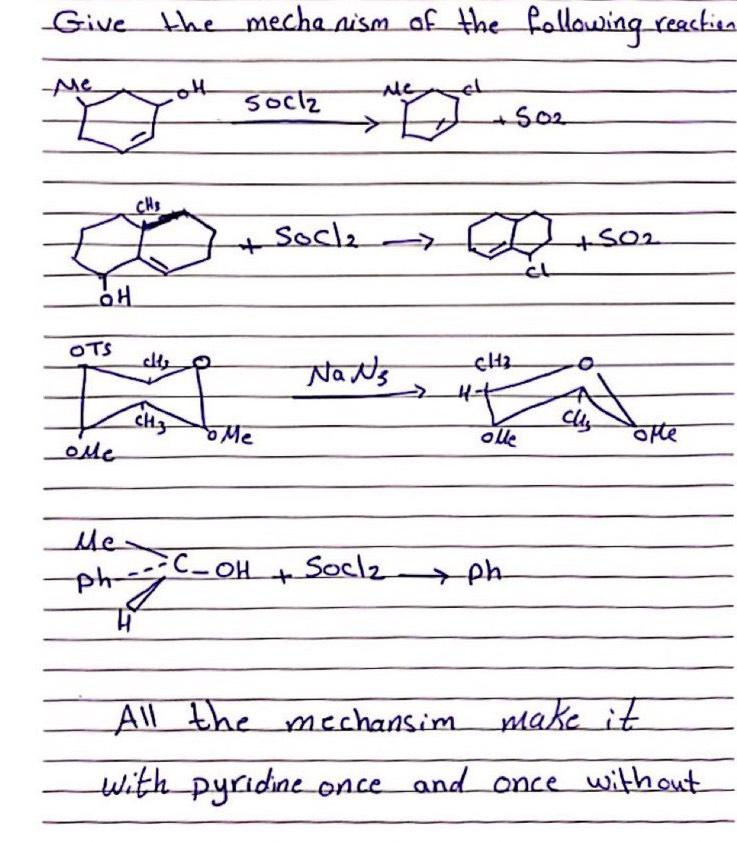 Give the mechanism of the following reaction
Me OH SOCl2 Me cl + SO2
CH3 + SOCl2 → + SO2
OH Cl
OTS CH3 O NaN3 CH3 O
H
CH3 OMe OMe CH3 OMe
OMe
Me
Ph C-OH + SOCl2 → Ph
H
All the mechansim make it
with pyridine once and once without